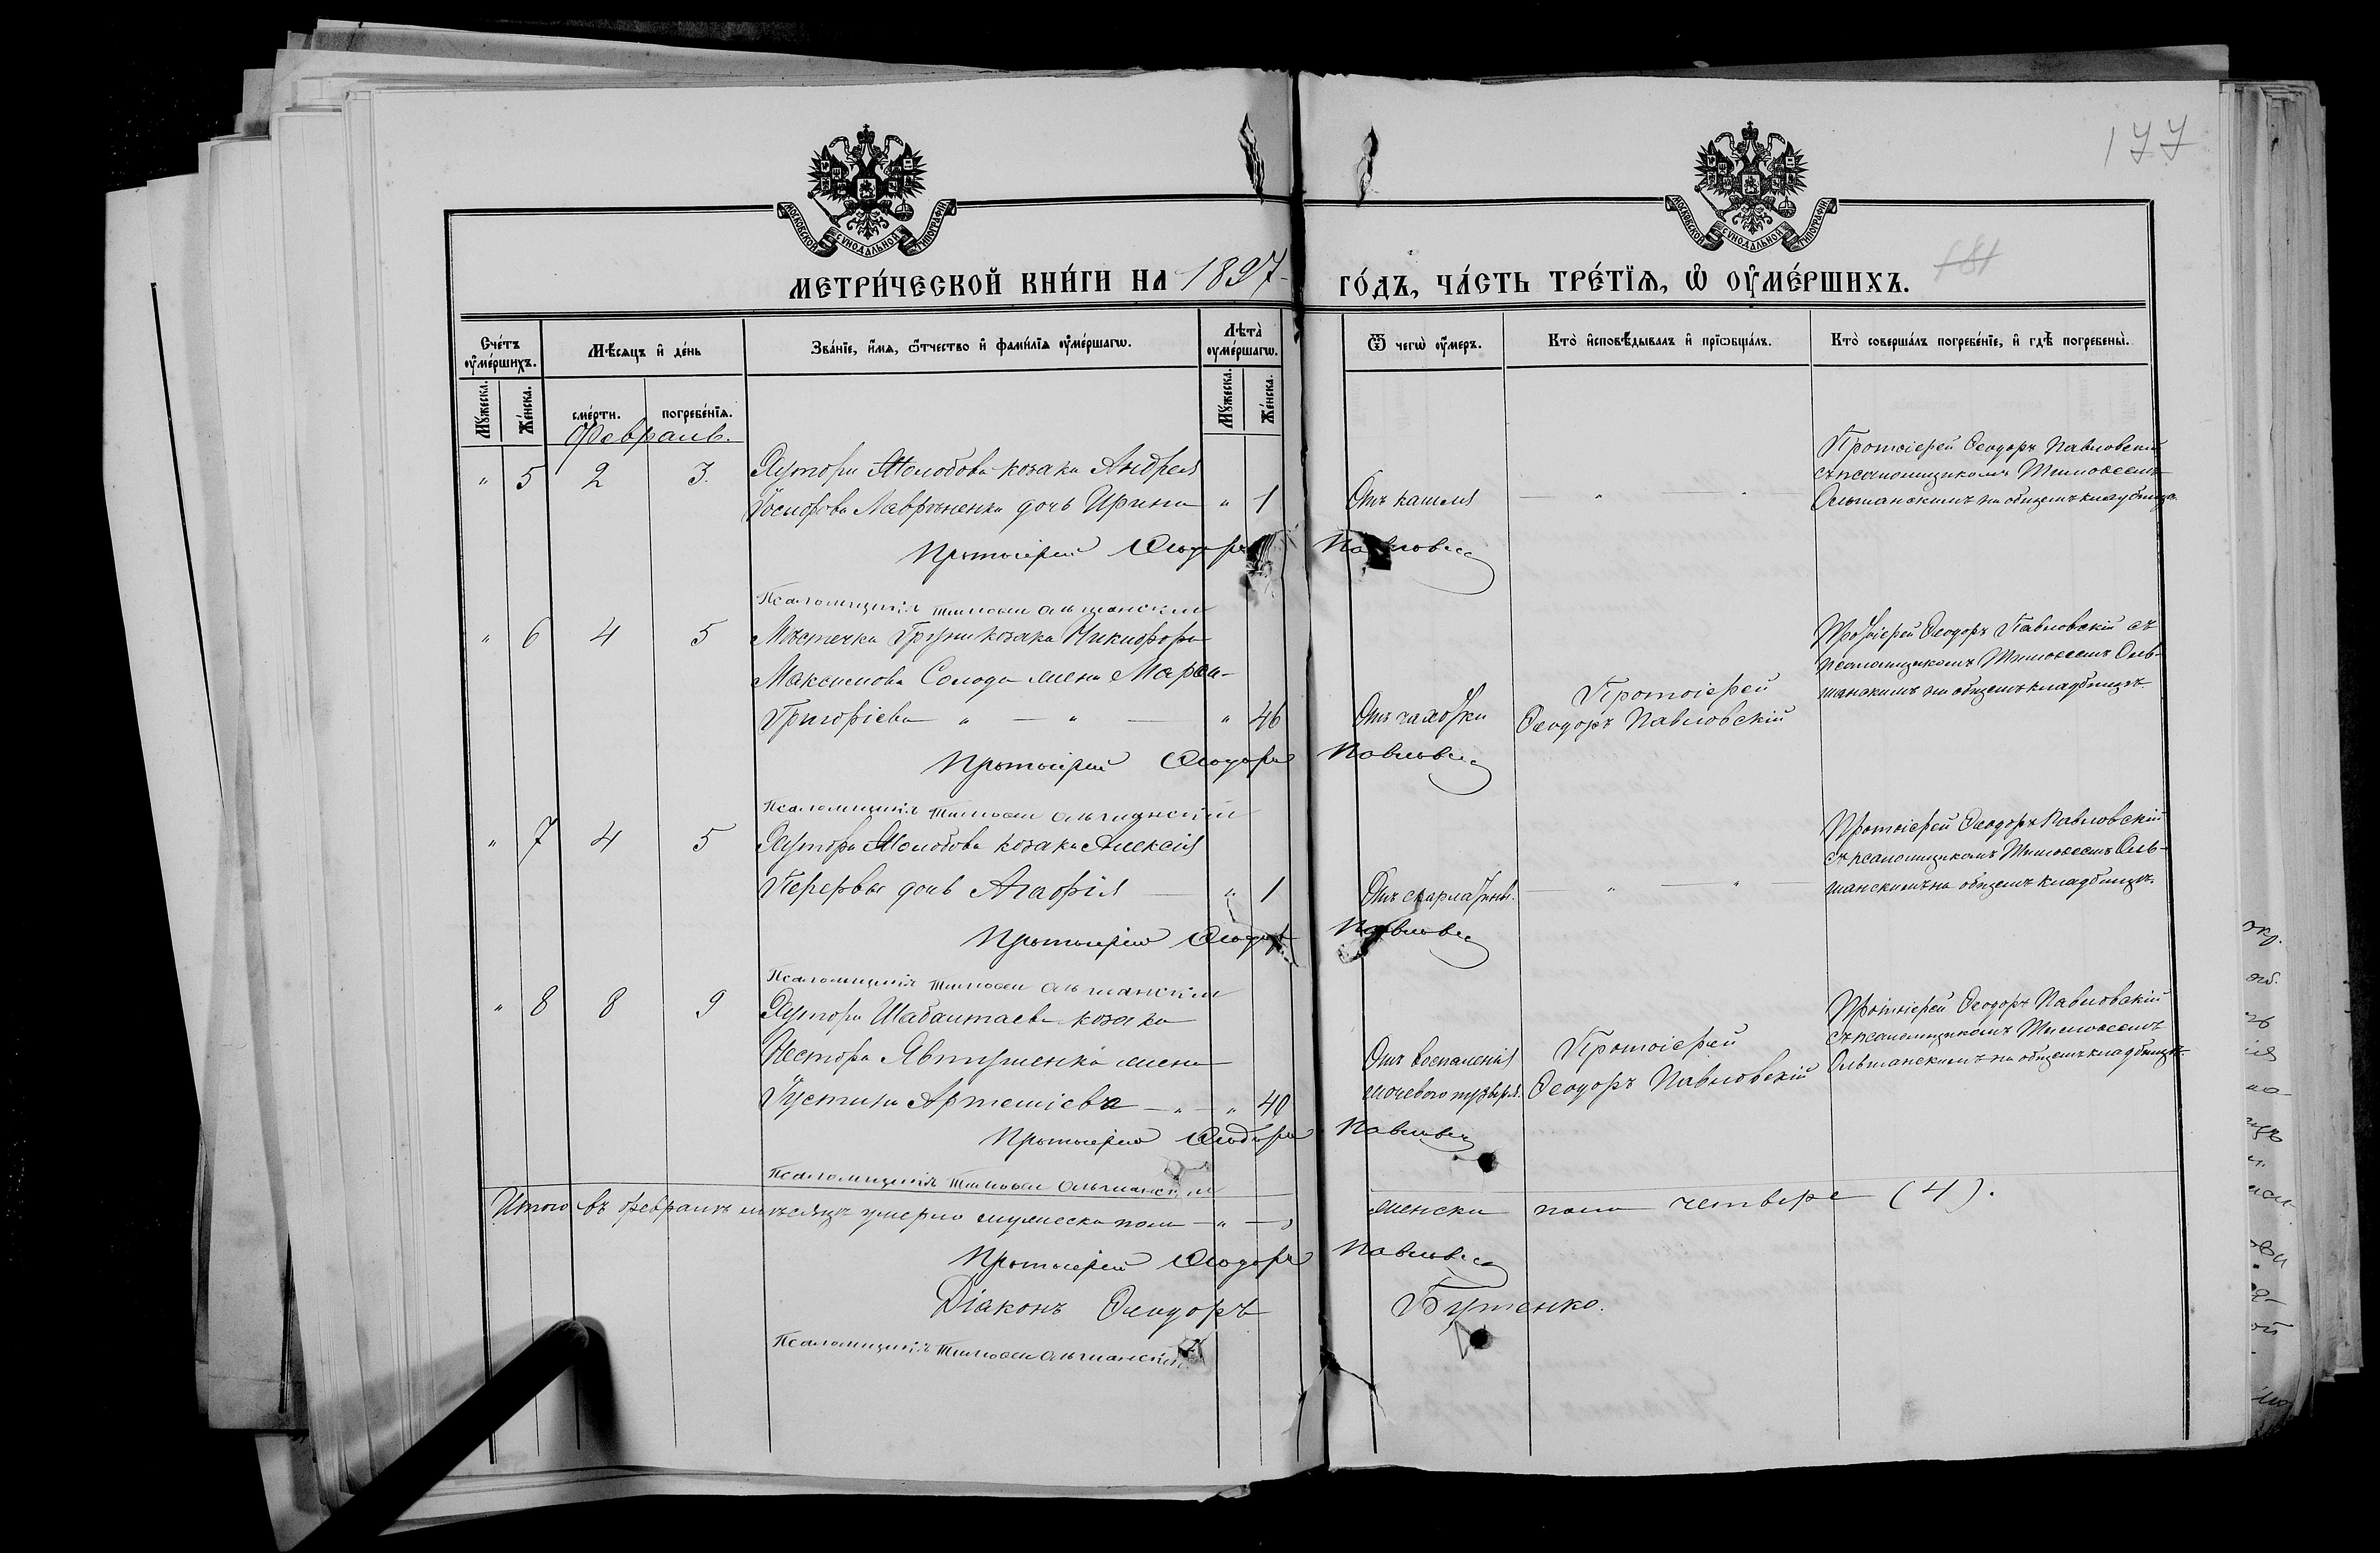 177
181
МОСКОВСКОЙ СУНОДАЛЬНОЙ ТИПОГРАФІИ
МОСКОВСКОЙ СУНОДАЛЬНОЙ ТИПОГРАФІИ
МЕТРИ́ЧЕСКОЙ КНИ́ГИ НА 1897 ГО́ДЪ, ЧА́СТЬ ТРЕ́ТІѦ, Ѡ҆ ОУ҆МЕ́РШИХЪ.
Сче́тъ оу҆ме́ршихъ.
Мѣ́сяцъ и҆ де́нь
Зва́нїе, и҆́мя, ѻ҆́тчество и҆ фами́лїя оу҆ме́ршагѡ.
Лѣта̀ оу҆ме́ршагѡ.
Ѿ чегѡ̀ оу҆́меръ.
Кто̀ и҆сповѣ́дывалъ и҆ прїѡбща́лъ.
Кто̀ соверша́лъ погребе́нїе, и҆ гдѣ̀ погребены̀.
Му́жеска. Же́нска. сме́рти. погребе́нїя. Му́жеска. Же́нска.
Февраль.
" 5 2 3. Хутора Молодова козака Андрея
Іосифова Лавріненка дочь Ирина " 1 Отъ кашля
Протоіерей Ѳеодоръ Павловскій
съ псаломщикомъ Тимоѳеемъ
Ольшанскимъ на общемъ кладбищѣ
Протоіерей Ѳеодоръ Павловскій
Псаломщикъ Тимоѳей Ольшанскій
" 6 4 5 Мѣстечка Груни козака Никифора
Максимова Солода жена Марѳа
Григоріева " " " 46 Отъ чахотки
Протоіерей
Ѳеодоръ Павловскій
Протоіерей Ѳеодоръ Павловскій съ
псаломщикомъ Тимоѳеемъ Оль-
шанскимъ на общемъ кладбищѣ.
Протоіерей Ѳеодоръ Павловскій
Псаломщикъ Тимоѳей Ольшанскій
" 7 4 5 Хутора Молодова козака Алексія
Перервы дочь Агафія " 1 Отъ скарлатины.
Протоіерей Ѳеодоръ Павловскій
съ псаломщикомъ Тимоѳеемъ Оль-
шанскимъ на общемъ кладбищѣ.
Протоіерей Ѳеодоръ Павловскій
Псаломщикъ Тимоѳей Ольшанскій
" 8 8 9 Хутора Шабалтаева козака
Нестора Явтушенка жена
Іустина Артеміева " " 40 Отъ воспаленія
мочевого пузыря.
Протоіерей
Ѳеодоръ Павловскій
Протоіерей Ѳеодоръ Павловскій
съ псаломщикомъ Тимоѳеемъ
Ольшанскимъ на общемъ кладбищѣ
Протоіерей Ѳеодоръ Павловскій
Псаломщикъ Тимоѳей Ольшанскій
Итого въ февралѣ мѣсяцѣ умерло мужеска пола " женска пола четверо (4).
Протоіерей Ѳеодоръ Павловскій
Діаконъ Ѳеодоръ Бутенко.
Псаломщикъ Тимоѳей Ольшанскій